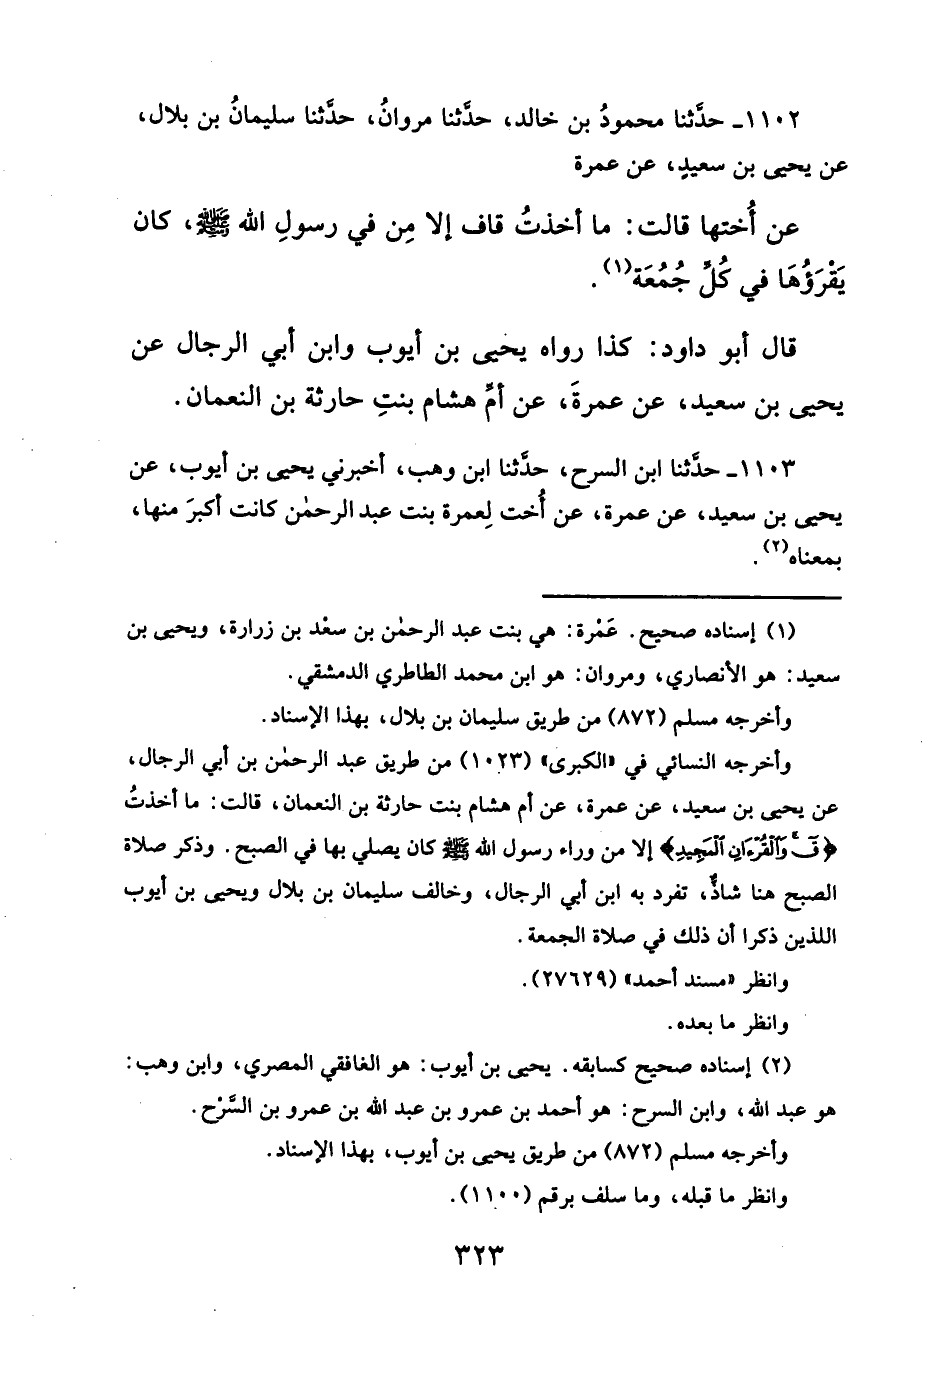 ١١٠٢ـ حدَّثنا محمودُ بن خالد، حدَّثنا مروانُ، حدَّثنا سليمانُ بن بلال،
عن يحيى بن سعيدٍ، عن عمرة
عن أُختها قالت: ما أخذتُ قاف إلا مِن في رسولِ الله ﷺ، كان
يَقْرَؤُهَا في كُلِّ جُمُعَة(١).
قال أبو داود: كذا رواه يحيى بن أيوب وابن أبي الرجال عن
يحيى بن سعيد، عن عمرةَ، عن أمِّ هشام بنتِ حارثة بن النعمان.
١١٠٣ـ حدَّثنا ابن السرح، حدَّثنا ابن وهب، أخبرني يحيى بن أيوب، عن
يحيى بن سعيد، عن عمرة، عن أُخت لِعمرة بنت عبد الرحمٰن كانت أكبرَ منها،
بمعناه(٢).
(١) إسناده صحيح. عَمْرة: هي بنت عبد الرحمٰن بن سعْد بن زرارة، ويحيى بن
سعيد: هو الأنصاري، ومروان: هو ابن محمد الطاطري الدمشقي.
وأخرجه مسلم (٨٧٢) من طريق سليمان بن بلال، بهذا الإسناد.
وأخرجه النسائي في «الكبرى» (١٠٢٣) من طريق عبد الرحمٰن بن أبي الرجال،
عن يحيى بن سعيد، عن عمرة، عن أم هشام بنت حارثة بن النعمان، قالت: ما أخذتُ
﴿قٓۚ وَٱلْقُرْءَانِ ٱلْمَجِيدِ﴾ إلا من وراء رسول الله ﷺ كان يصلي بها في الصبح. وذكر صلاة
الصبح هنا شاذٌّ، تفرد به ابن أبي الرجال، وخالف سليمان بن بلال ويحيى بن أيوب
اللذين ذكرا أن ذلك في صلاة الجمعة.
وانظر «مسند أحمد» (٢٧٦٢٩).
وانظر ما بعده.
(٢) إسناده صحيح كسابقه. يحيى بن أيوب: هو الغافقي المصري، وابن وهب:
هو عبد الله، وابن السرح: هو أحمد بن عمرو بن عبد الله بن عمرو بن السَّرْح.
وأخرجه مسلم (٨٧٢) من طريق يحيى بن أيوب، بهذا الإسناد.
وانظر ما قبله، وما سلف برقم (١١٠٠).
٣٢٣